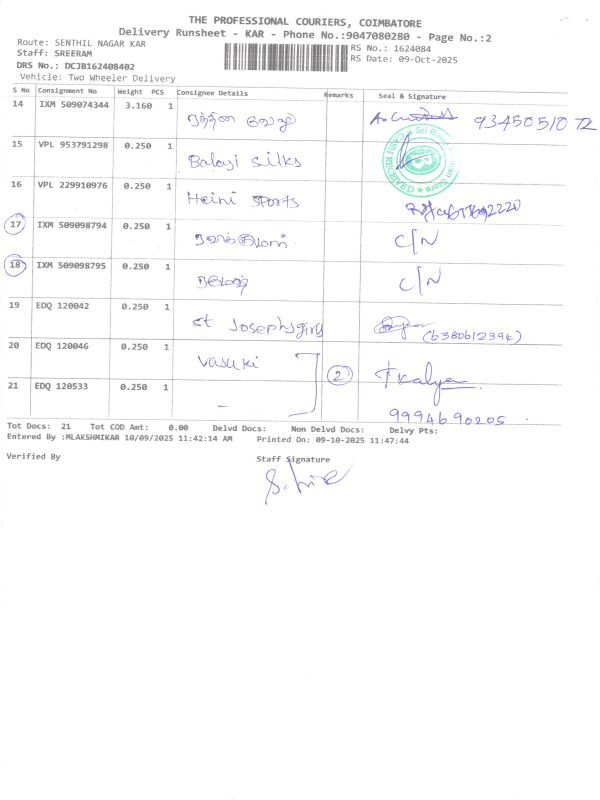 THE PROFESSIONAL COURIERS, COIMBATORE
Delivery Runsheet - KAR - Phone No.:9047080280 - Page No.:2
Route: SENTHIL NAGAR KAR
Staff: SREERAM
DRS No.: DCJB162408402
Vehicle: Two Wheeler Delivery
RS No.: 1624084
RS Date: 09-Oct-2025
S No Consignment No Weight PCS Consignee Details Remarks Seal & Signature
14 IXM 509074344 3.160 1
15 VPL 953791298 0.250 1 Balaji Silks
16 VPL 229910976 0.250 1 Heini Sports
17 IXM 509098794 0.250 1 C/N
18 IXM 509098795 0.250 1 C/N
19 EDQ 120042 0.250 1 St Josephs girls (6380612394)
20 EDQ 120046 0.250 1 Vasuki 2
21 EDQ 120533 0.250 1 - 9994690205
Tot Docs: 21 Tot COD Amt: 0.00 Delvd Docs: Non Delvd Docs: Delvy Pts:
Entered By :MLAKSHMIKAR 10/09/2025 11:42:14 AM Printed On: 09-10-2025 11:47:44
Verified By Staff Signature